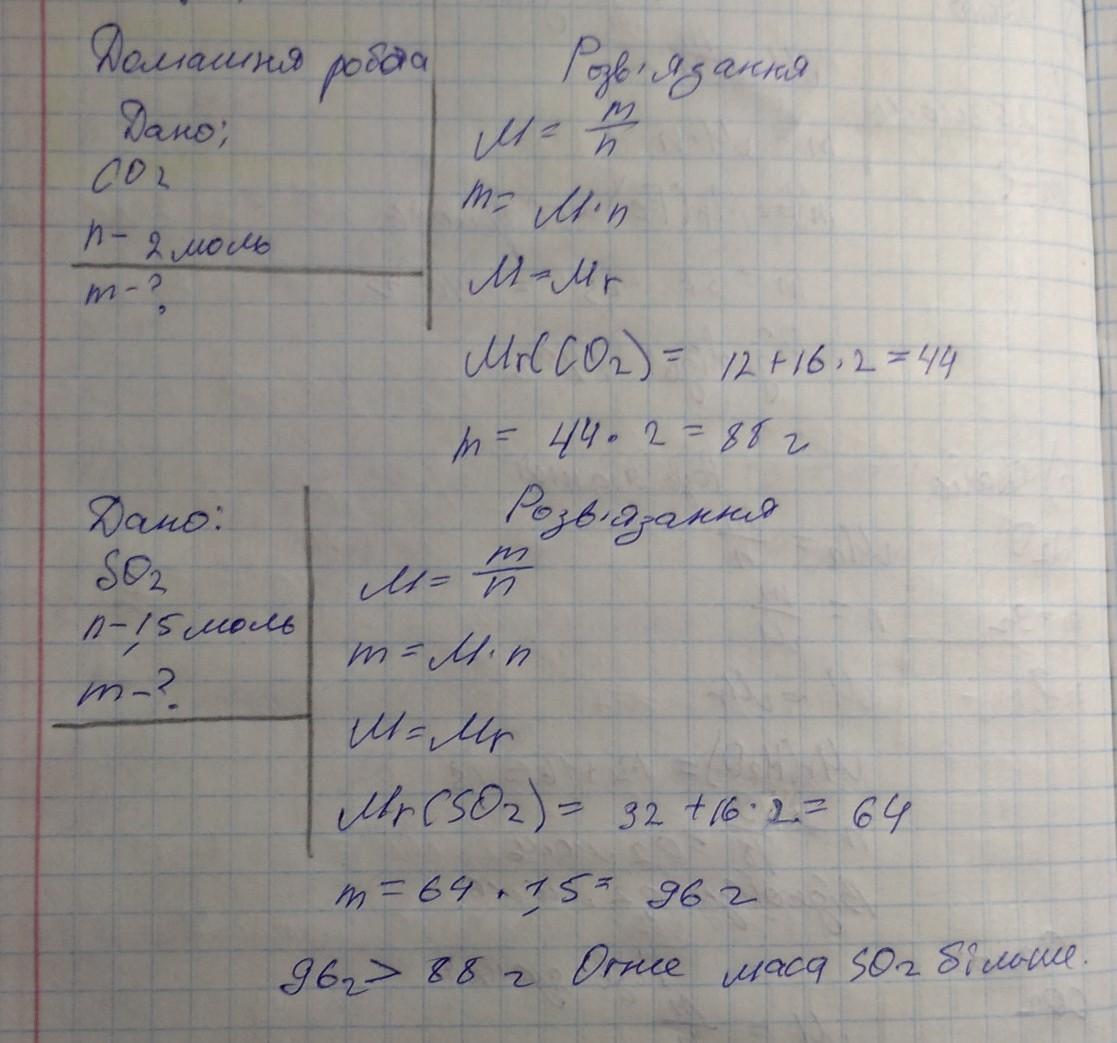 Домашня робота
Дано;
CO2
n- 2 моль
m-?
Розв'язання
M = m/n
m= M·n
M=Mr
Mr(CO2) = 12+16·2=44
m= 44·2=88 г
Дано:
SO2
n-1,5 моль
m-?
Розв'язання
M= m/n
m=M·n
M=Mr
Mr(SO2)= 32+16·2= 64
m=64·1,5= 96 г
96г> 88 г Отже маса SO2 більше.